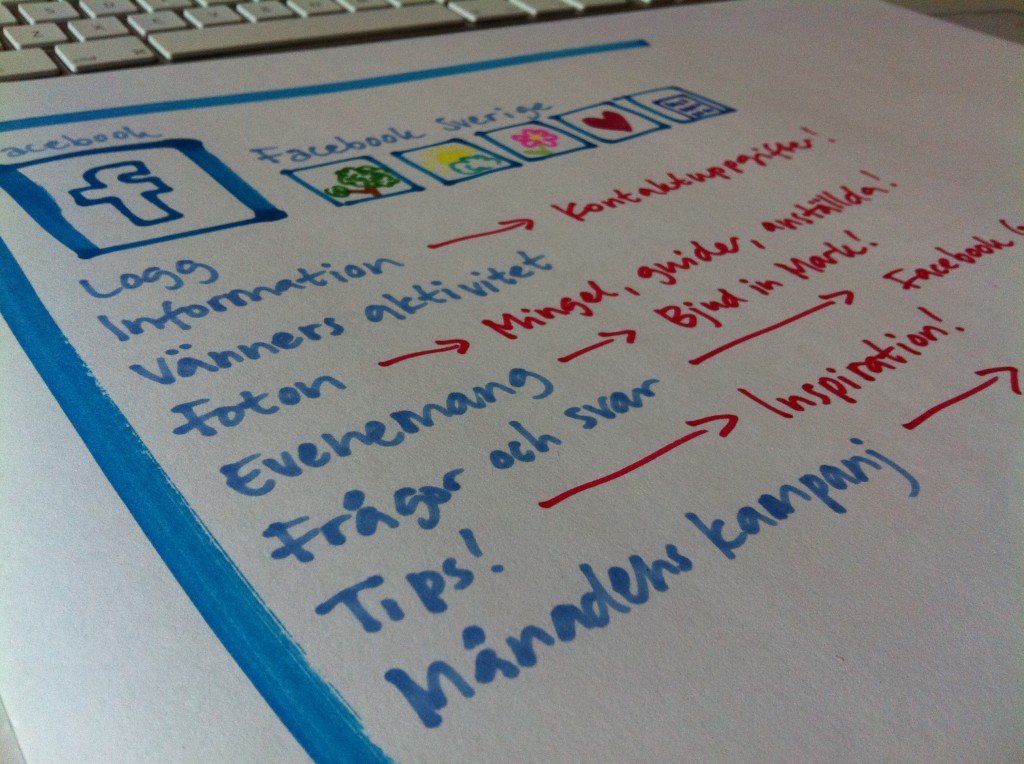 acebook
Facebook Sverige
f
Logg
Information → Kontaktuppgifter!
Vänners aktivitet
Foton → Mingel, guider, anställda!
Evenemang → Bjud in Mark!
Frågor och svar → Facebook
Tips! → Inspiration!
Månadens kampanj →